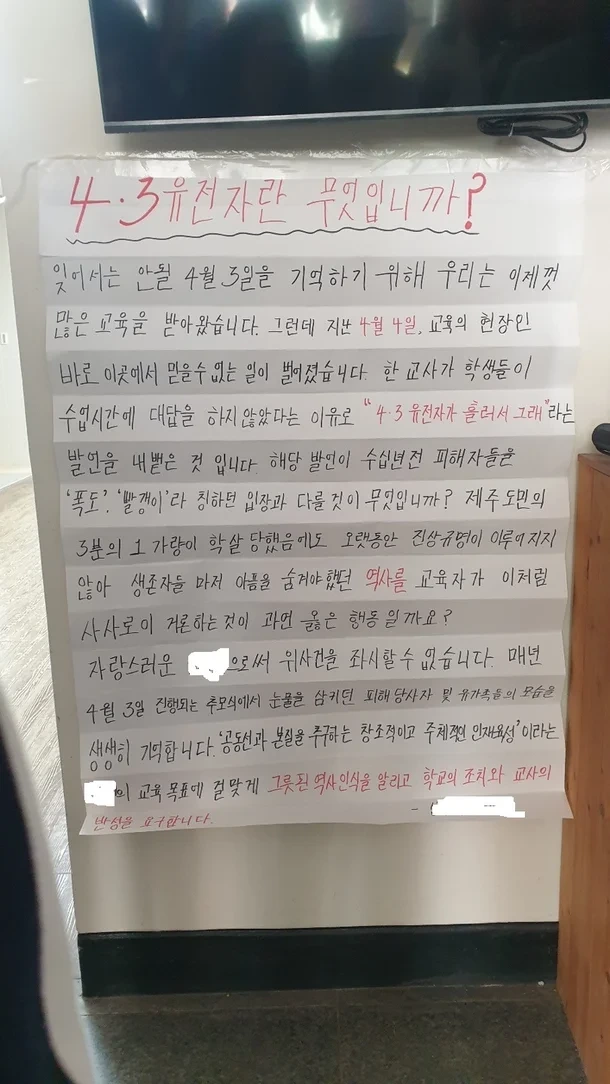 4·3 유전자란 무엇입니까?
잊어서는 안될 4월 3일을 기억하기 위해 우리는 이제껏
많은 교육을 받아왔습니다. 그런데 지난 4월 4일, 교육의 현장인
바로 이곳에서 믿을수 없는 일이 벌어졌습니다. 한 교사가 학생들이
수업시간에 대답을 하지 않았다는 이유로 "4·3 유전자가 흘러서 그래"라는
발언을 내뱉은 것 입니다. 해당 발언이 수십년전 피해자들을
'폭도', '빨갱이'라 칭하던 입장과 다를것이 무엇입니까? 제주도민의
3분의 1 가량이 학살 당했음에도 오랫동안 진상규명이 이루어지지
않아 생존자들 마저 아픔을 숨겨야했던 역사를 교육자가 이처럼
사사로이 거론하는것이 과연 옳은 행동일까요?
자랑스러운 으로써 위사건을 좌시할수 없습니다. 매년
4월 3일 진행되는 추모식에서 눈물을 삼키던 피해당사자 및 유가족들의 모습을
생생히 기억합니다. '공동선과 본질을 추구하는 창조적이고 주체적인 인재육성'이라는
의 교육 목표에 걸맞게 그릇된 역사인식을 알리고 학교의 조치와 교사의
반성을 요구합니다. -